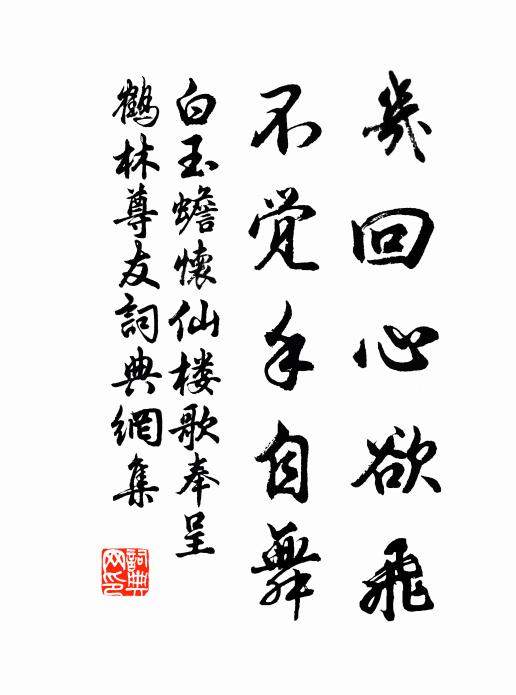 幾回心欲飛
不覚手自舞
白玉蟾懷仙楼歌奉呈
鶴林尊友詞典網集
詞典网印